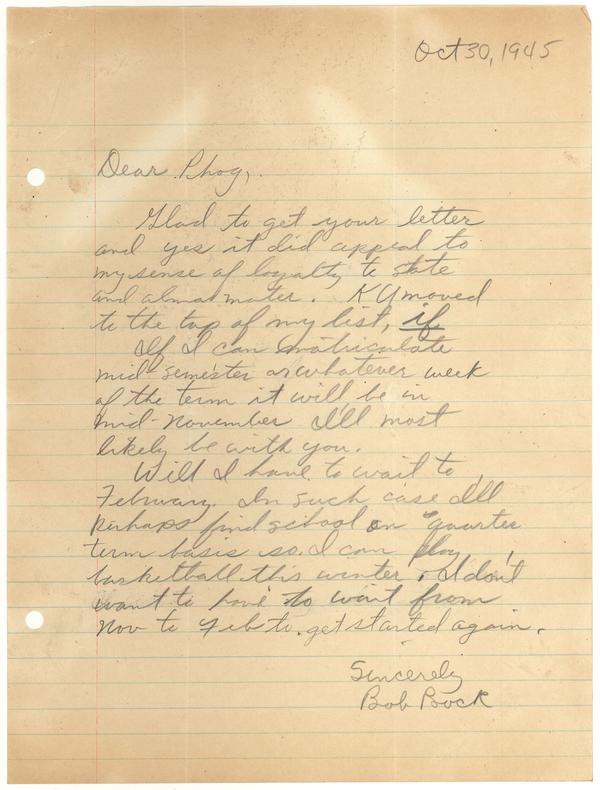 Oct 30, 1945
Dear Phog,
Glad to get your letter
and yes it did appeal to
my sense of loyalty to state
and alma mater. KU moved
to the top of my list, if
If I can matriculate
mid-semester or whatever week
of the term it will be in
mid-november I'll most
likely be with you.
Will I have to wait to
February. In such case I'll
perhaps find school on "quarter
term basis so I can play
basketball this winter. I don't
want to have to wait from
Nov to Feb to get started again.
Sincerely
Bob Bock